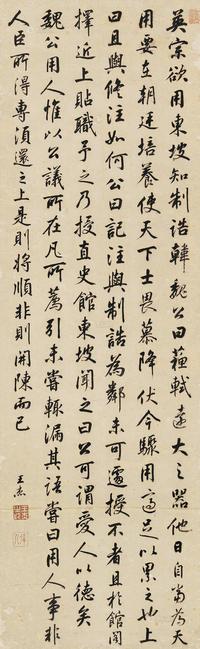 英宗欲用東坡知制誥韓魏公曰蘇軾遠大之器他日自當為天
用要在朝廷培養使天下士畏慕降伏今驟用適足以累之也上
曰且與修注如何公曰記注與制誥為鄰未可遽授不若且於館閣
擇近上貼職予之乃授直史館東坡聞之曰公可謂愛人以德矣
魏公用人惟以公議所在凡所薦引未嘗輒漏其語嘗曰用人事非
人臣所得專須還之上是則將順非則開陳而已
王杰